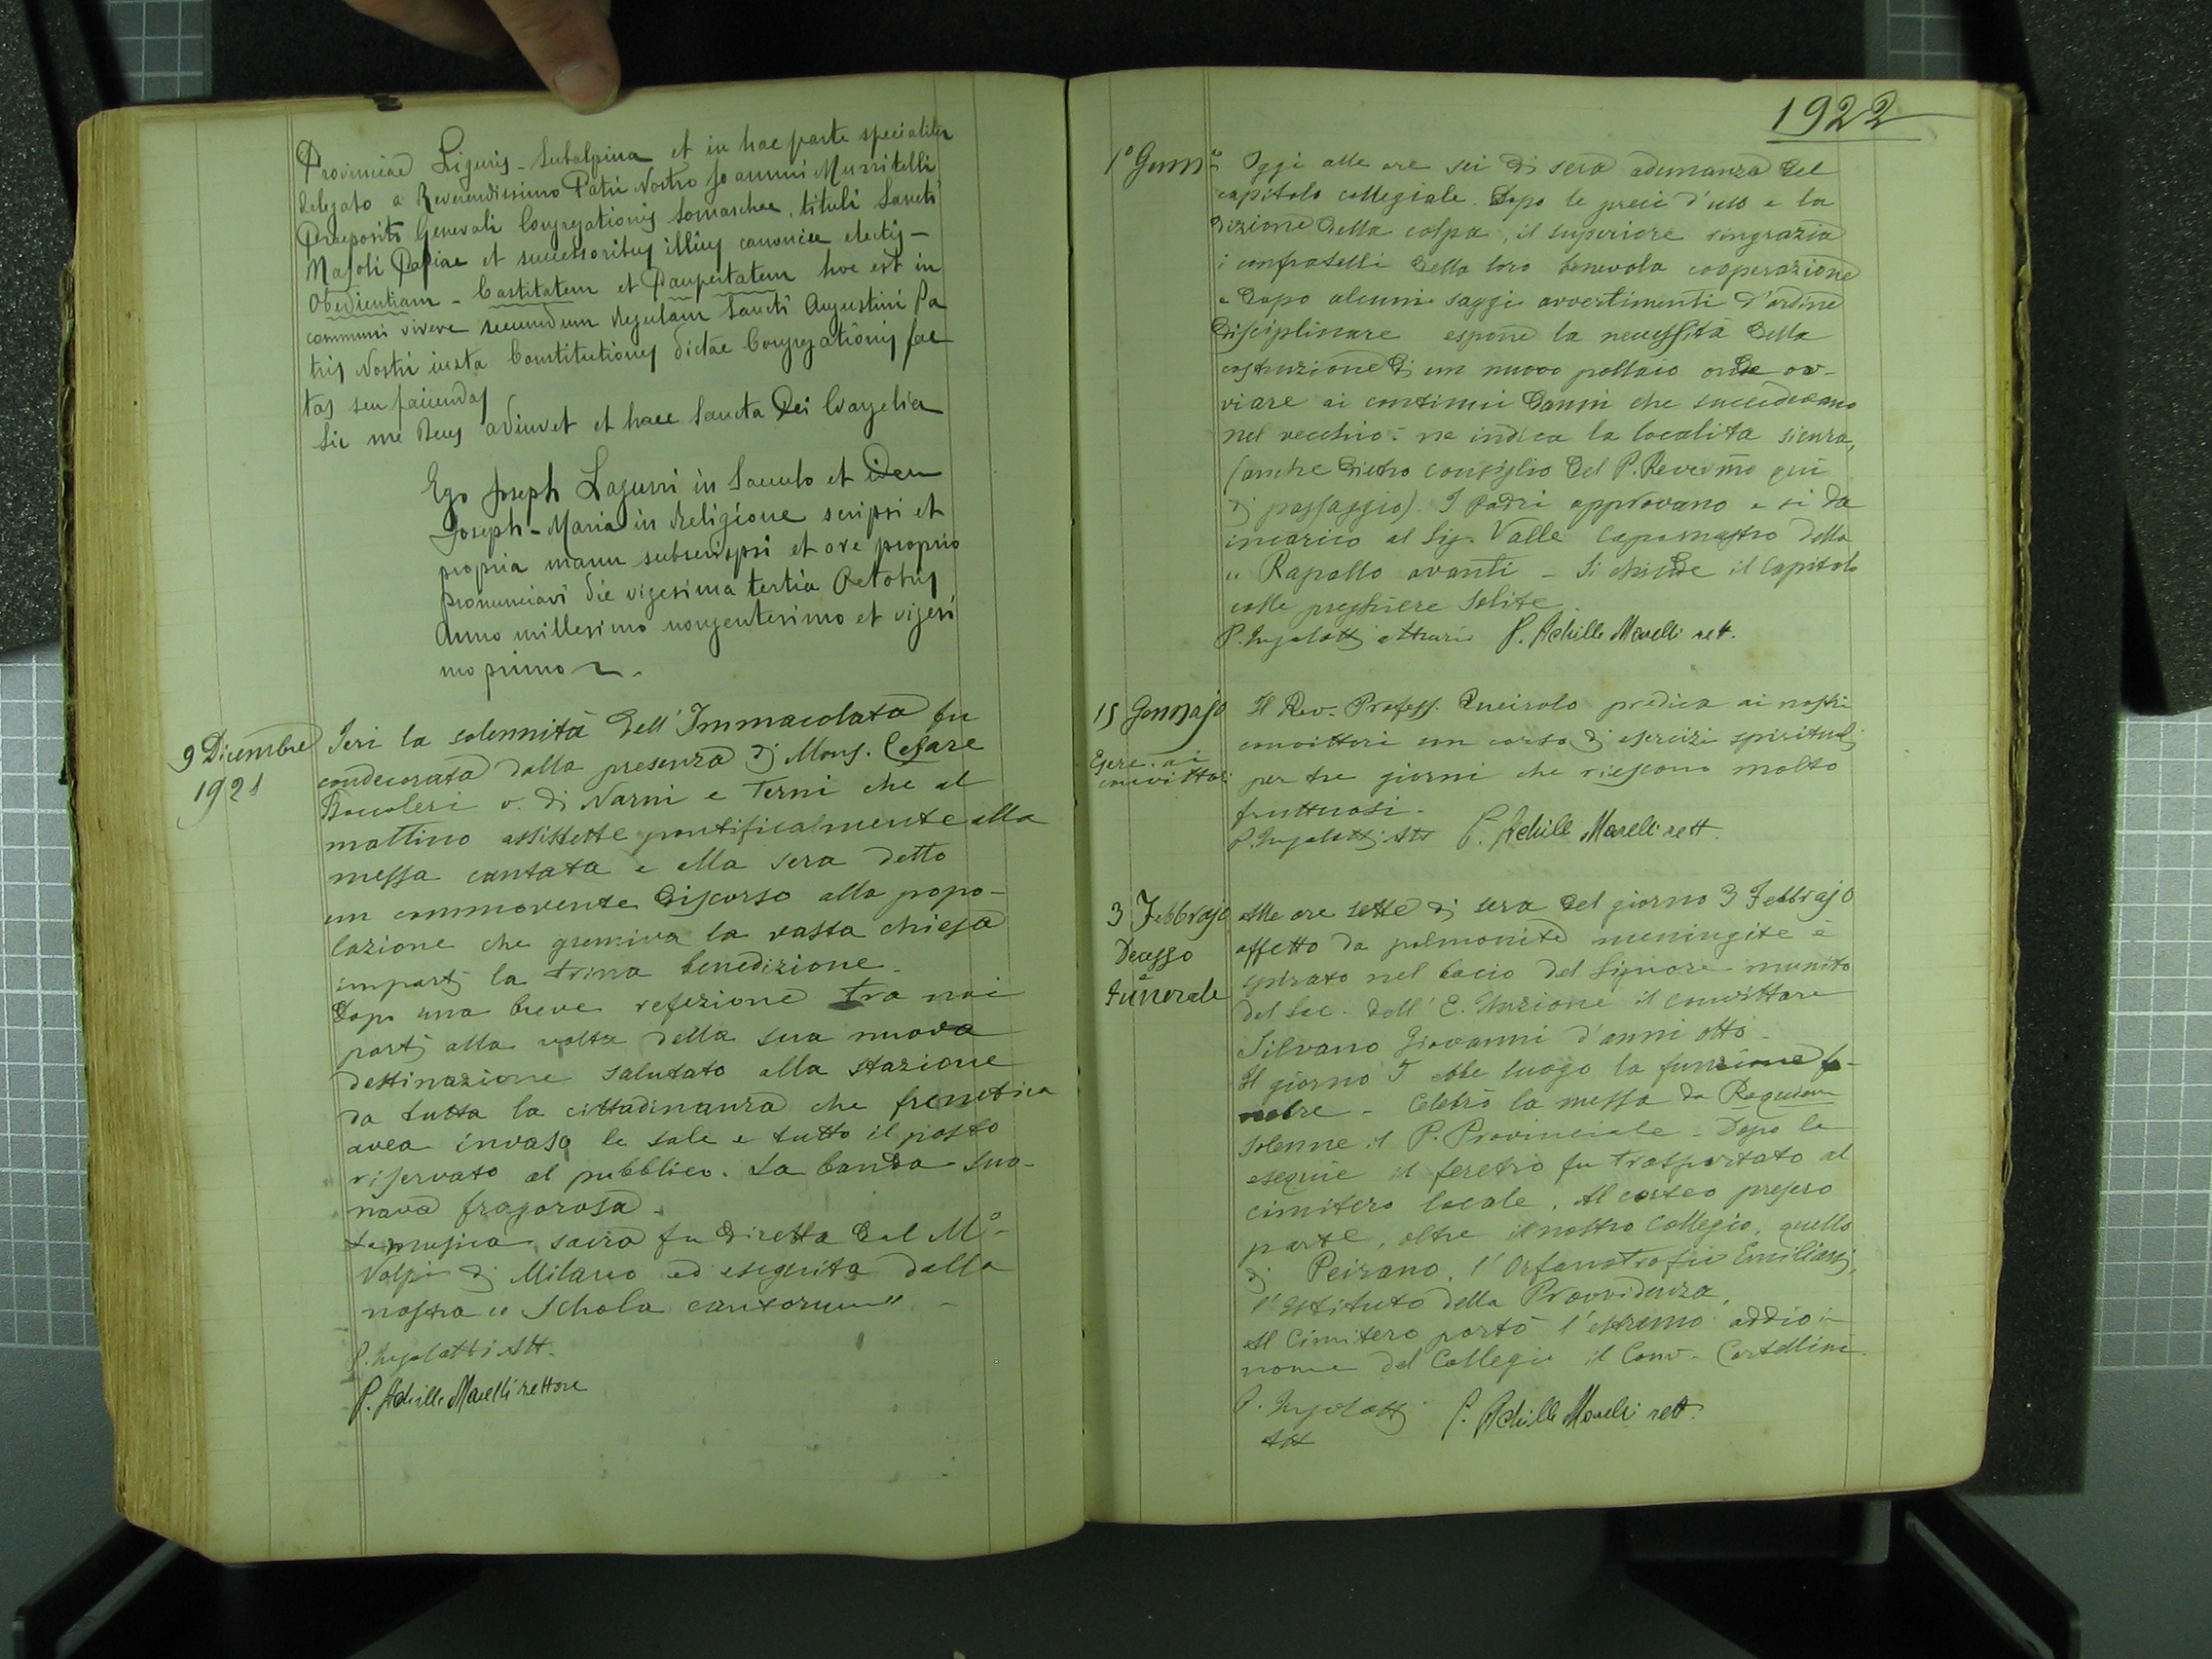 Provinciae Liguris-Subalpina et in hac parte specialiter
delegato a Reverendissimo Patri Nostro Joanni Muzzitelli
Praeposito Generali Congregationis Somaschae, tituli Sancti
Majoli Papiae et successoribus illius canonice electis -
Obedientiam - Castitatem et Paupertatem hoc est in
communi vivere secundum Regulam Sancti Augustini Pa
tris Nostri iuxta Constitutiones dictae Congregationis fac
tas seu faciendas
Sic me Deus adiuvet et haec Sancta Dei Evangelia
Ego Joseph in Saeculo et idem
Joseph-Maria in Religione scripsi et
propria manu subscripsi et ore proprio
pronunciavi die vigesima tertia Octobris
Anno millesimo nongentesimo et vigesi
mo primo
9 Dicembre
1921
Ieri la solennità dell'Immacolata fu
condecorata dalla presenza di Mons. Cesare
Boccoleri v. di Narni e Terni che al
mattino assistette pontificalmente alla
messa cantata e alla sera detto
un commovente discorso alla popo-
lazione che gremiva la vasta chiesa
impartì la trina benedizione.
Dopo una breve refezione tra noi
partì alla volta della sua nuova
destinazione salutato alla stazione
da tutta la cittadinanza che frenetica
avea invaso le sale e tutto il posto
riservato al pubblico. La banda suo-
nava fragorosa.
La musica sacra fu diretta dal M.o
Volpi di Milano ed eseguita dalla
nostra "Schola cantorum" -
P. Ingolotti Att.
P. Achille Marelli rettore
1922
1° Genn.o
Oggi alle ore sei di sera adunanza del
capitolo collegiale. Dopo le preci d'uso e la
dizione della colpa, il superiore ringrazia
i confratelli della loro benevola cooperazione
e dopo alcuni saggi avvertimenti d'ordine
disciplinare espone la necessità della
costruzione di un nuovo pollaio onde ov-
viare ai continui danni che succedevano
nel vecchio: ne indica la località sicura,
(anche dietro consiglio del P. Reverm̃o qui
di passaggio). I Padri approvano e si da
incarico al Sig. Valle capomastro della
" Rapallo avanti - Si chiude il Capitolo
colle preghiere solite.
P. Ingolotti attuario P. Achille Marelli rett.
15 Gennajo
Eserc. ai
convittori
Il Rev. Profess. Queirolo predica ai nostri
convittori un corso di esercizi spirituali
per tre giorni che riescono molto
fruttuosi.
P. Ingolotti Att P. Achille Marelli rett.
3 Febbrajo
Decesso
e
funerale
Alle ore sette di sera del giorno 3 Febbrajo
affetto da polmonite meningite è
spirato nel bacio del Signore munito
del Sac. dell'E. Unzione il convittore
Silvano Giovanni d'anni otto.
Il giorno 5 ebbe luogo la funzione fu-
nebre - Celebrò la messa da Requiem
solenne il P. Provinciale - Dopo le
esequie il feretro fu trasportato al
cimitero locale. Al corteo presero
parte, oltre il nostro Collegio, quello
di Peirano, l'Orfanotrofio Emiliani,
l'Istituto della Provvidenza.
Al Cimitero portò l'estremo addio in
nome del Collegio il Conv. Cortellini
P. Ingolotti P. Achille Marelli rett.
Att